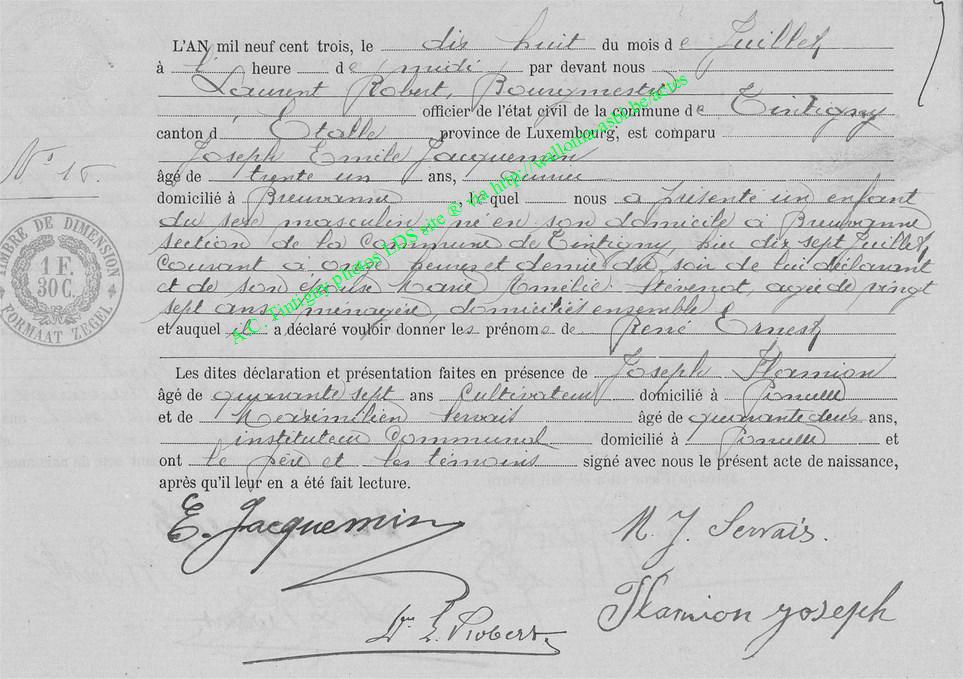 L'AN mil neuf cent trois, le dix huit du mois de Juillet
à l' heure de midi par devant nous
Laurent Robert, Bourgmestre
officier de l'état civil de la commune de Tintigny
canton d' Etalle province de Luxembourg, est comparu
Joseph Emile Jacquemin
âgé de trente un ans,
domicilié à Breuvanne, lequel nous a présenté un enfant
du sexe masculin, né en son domicile à Breuvanne
section de la Commune de Tintigny, hier dix sept Juillet
courant à onze heures et demie du soir de lui déclarant
et de son épouse Marie Amélie Stévenot, agée de vingt
sept ans, ménagère, domiciliés ensemble
et auquel il a déclaré vouloir donner les prénoms de René Ernest
Les dites déclaration et présentation faites en présence de Joseph Hamion
âgé de quarante sept ans Cultivateur domicilié à
et de Maximilien Servais âgé de quarante deux ans,
instituteur Communal domicilié à et
ont le père et les témoins signé avec nous le présent acte de naissance,
après qu'il leur en a été fait lecture.
N° 16.
TIMBRE DE DIMENSION
1 F.
30 C.
FORMAAT ZEGEL
A.C : Tintigny photos LDS site ® via http://wallonia.asbl.be/actes
E. Jacquemin
M. J. Servais.
L. Robert.
Hamion Joseph